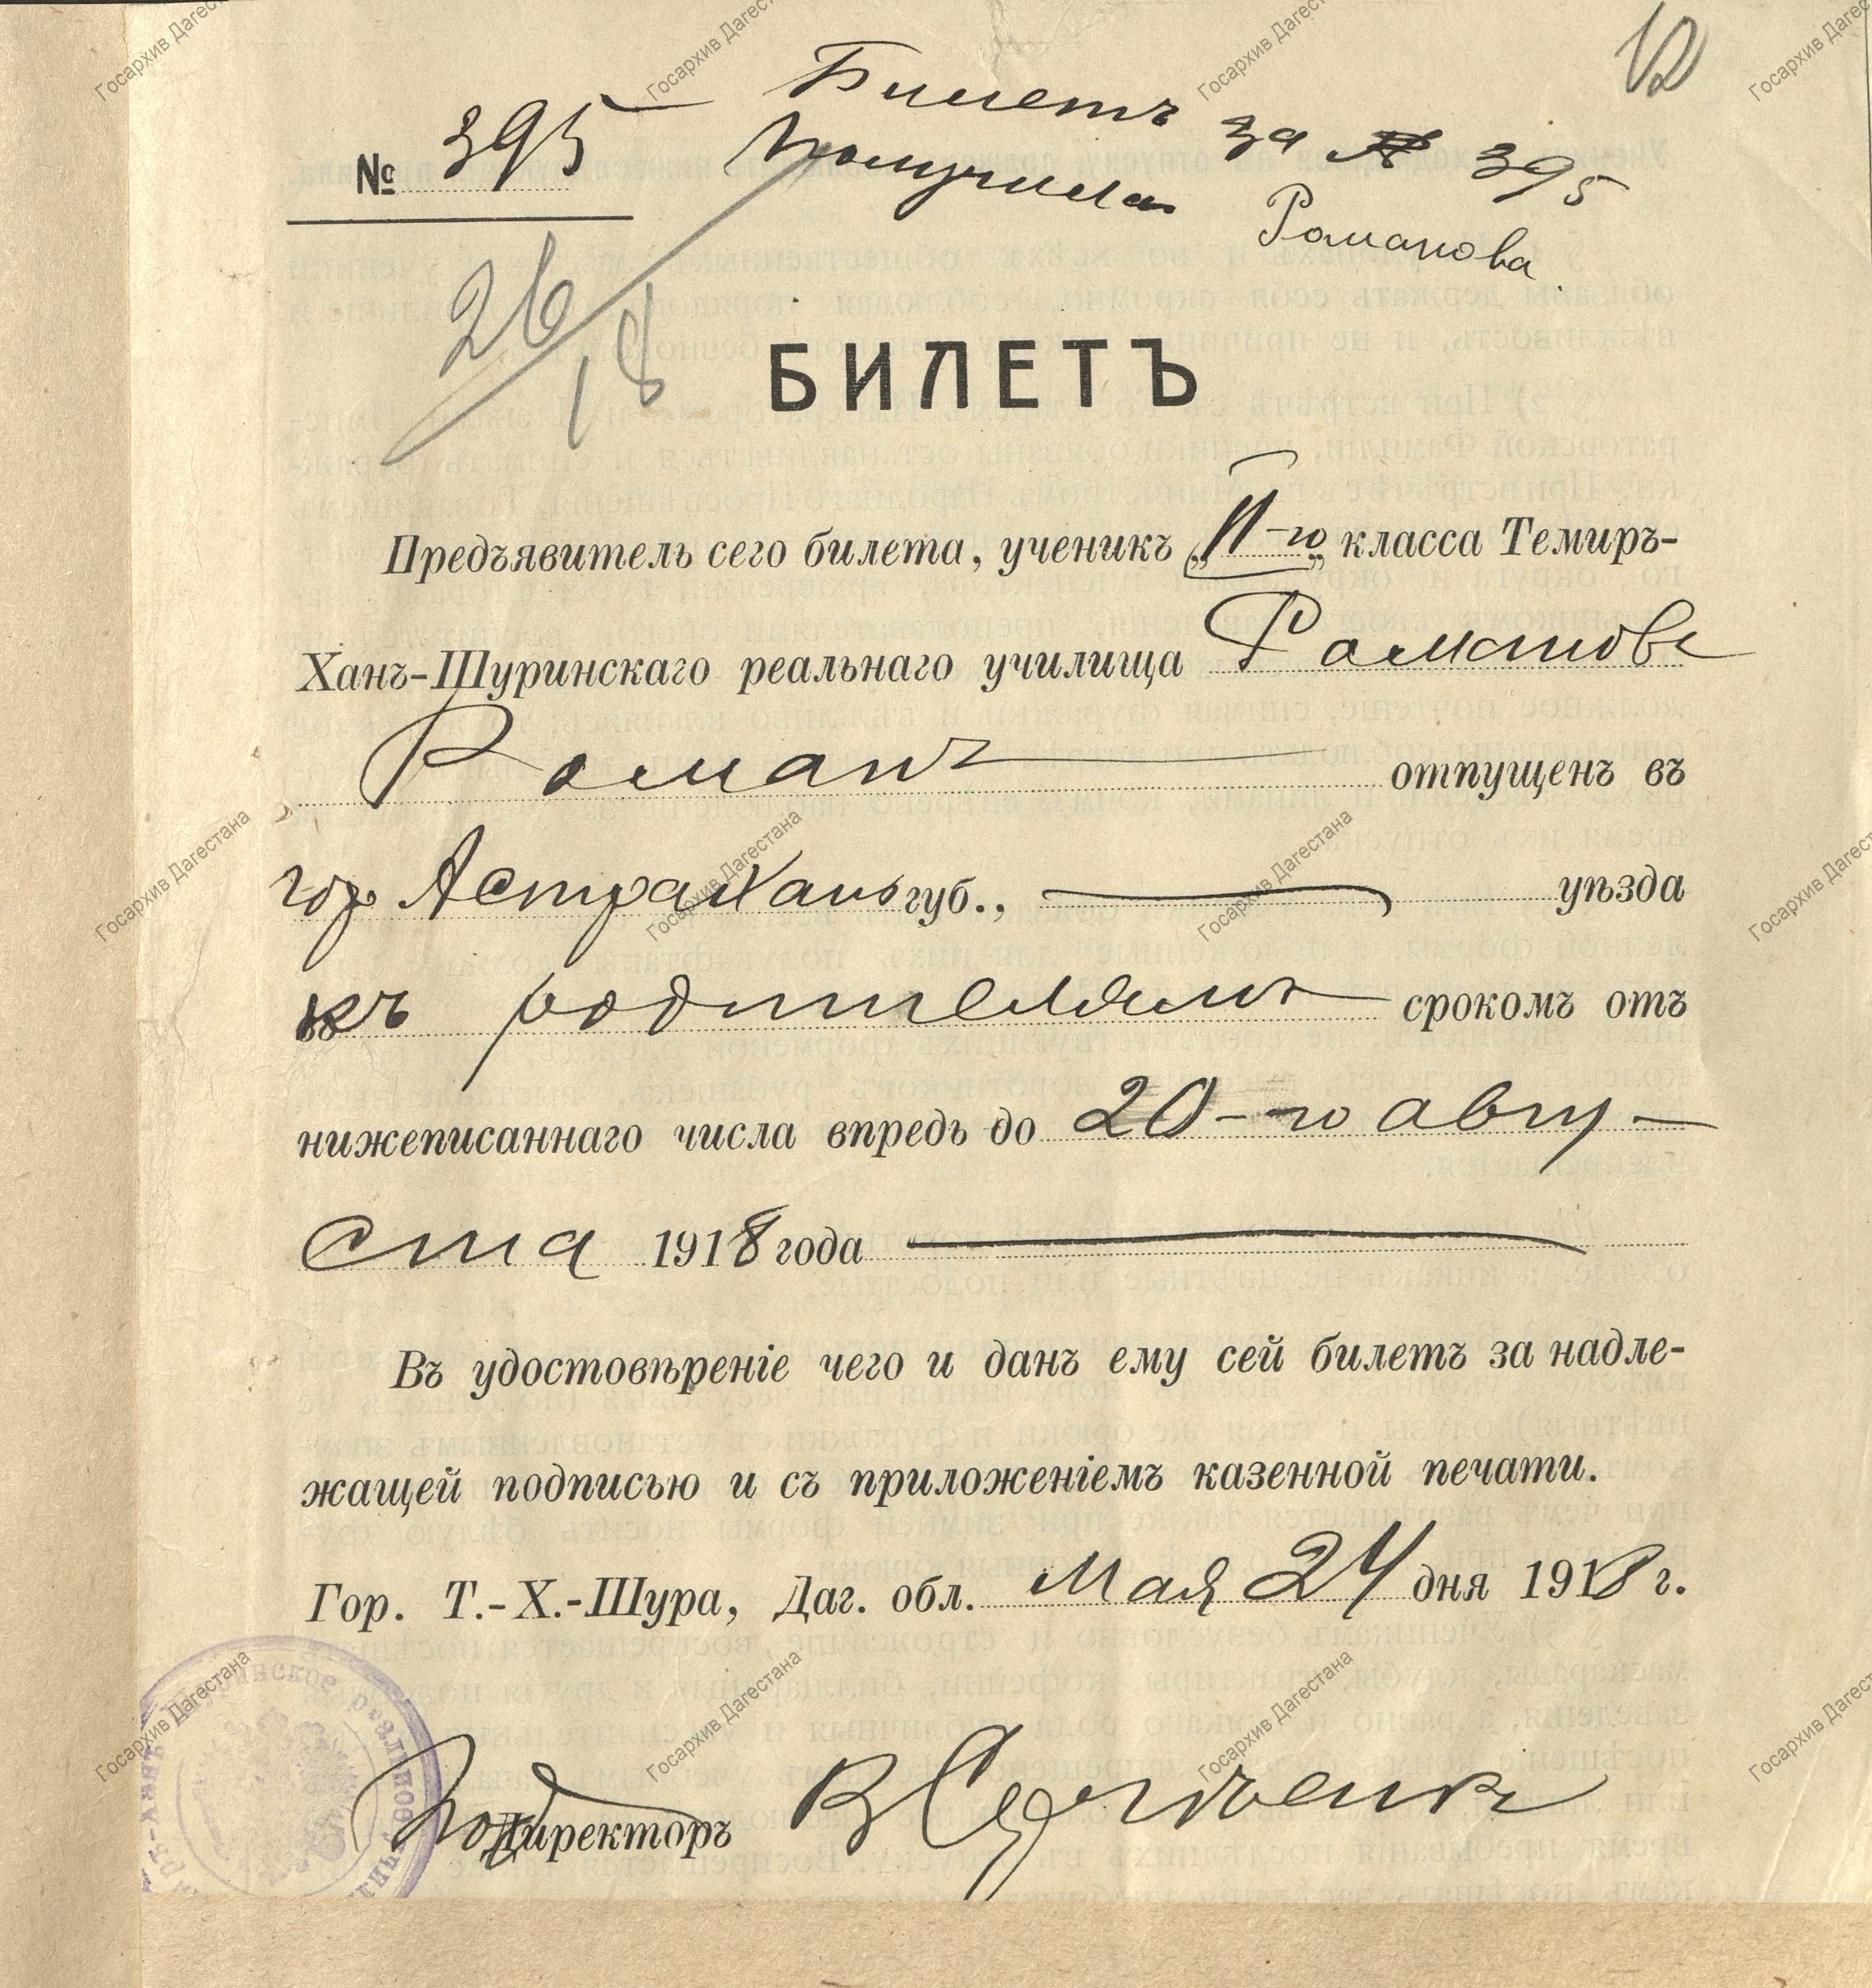 12
Билетъ за № 395
№ 395
Получила Романова
26/18
БИЛЕТЪ
Предъявитель сего билета, ученикъ „II-го„ класса Темиръ-
Ханъ-Шуринскаго реальнаго училища Романовъ
Романъ отпущенъ въ
гор. Астрахань губ., уѣзда
къ родителямъ срокомъ отъ
нижеписаннаго числа впредь до 20-го авгу-
ста 1918 года
Въ удостовѣреніе чего и данъ ему сей билетъ за надле-
жащей подписью и съ приложеніемъ казенной печати.
Гор. Т.-Х.-Шура, Даг. обл. Мая 24 дня 1918 г.
Директоръ
Госархив Дагестана